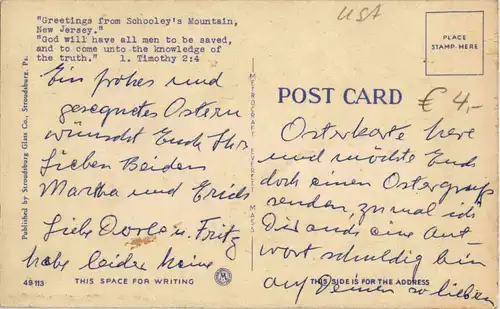 USA
"Greetings from Schooley's Mountain,
New Jersey."
"God will have all men to be saved,
and to come unto the knowledge of
the truth." 1. Timothy 2:4
Ein frohes und
gesegnetes Ostern
wünscht Euch Ihr
Lieben Beiden
Martha und Erich
Liebe Dorle u. Fritz
habe leider keine
49113
THIS SPACE FOR WRITING
Published by Stroudsburg Glass Co., Stroudsburg, Pa.
METROCRAFT EVERETT MASS
M
PLACE
STAMP HERE
POST CARD
€ 4,-
Osterkarte here
und möchte Euch
doch einen Ostergruß
senden, zumal ich
Dir auch eine Ant-
wort schuldig bin
auf Deinen so lieben
THIS SIDE IS FOR THE ADDRESS